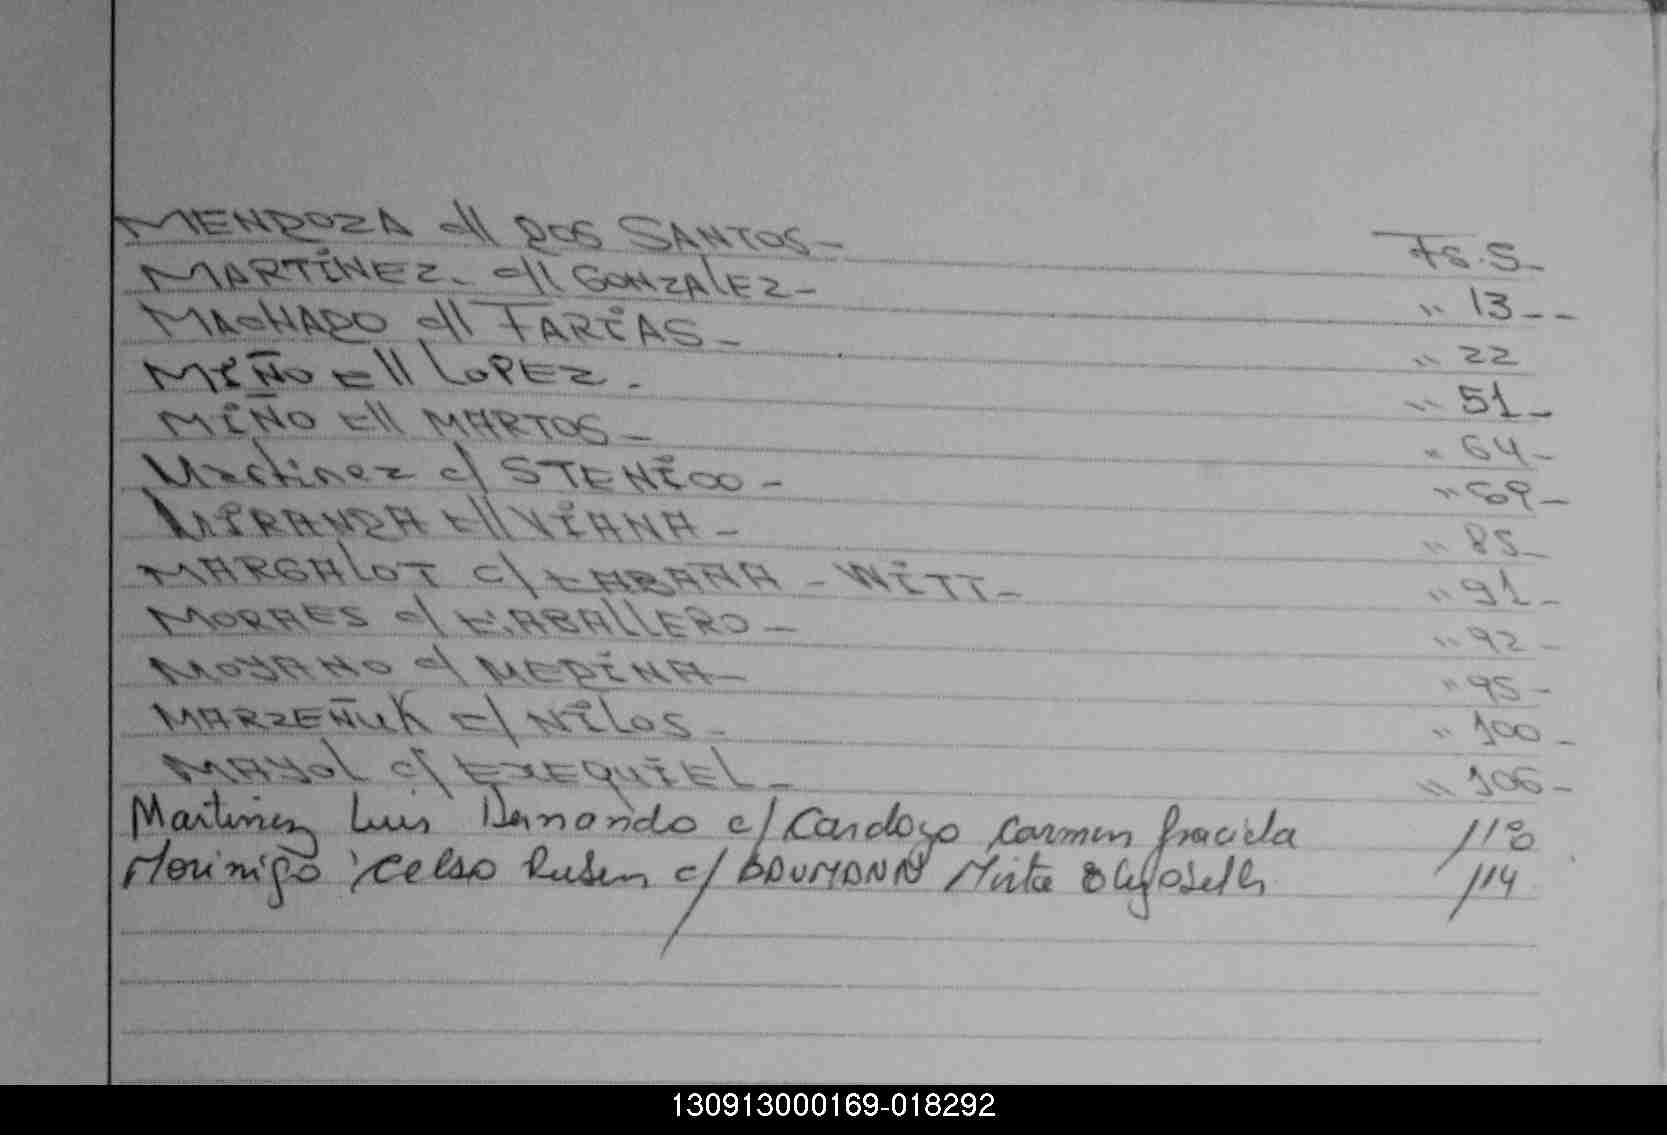 MENDOZA c/ll DOS SANTOS- Fs. 5-
MARTÍNEZ. c/ll GONZALEZ- " 13--
MACHADO c/ll FARÍAS- " 22
MIÑO c/ll LOPEZ. " 51-
MIÑO c/ll MARTOS- " 64-
Martinez c/ STENICO- " 69-
MIRANDA c/ll VIANA- " 85-
MARGALOT c/ CABAÑA - WITT- " 91-
MORAES c/ CABALLERO- " 92-
MOYANO c/ MEDINA- " 95-
MARZEÑUK c/ NILOS- " 100-
MAYOL c/ EXEQUIEL- " 106-
Martinez Luis Hernando c/ Cardozo Carmen Graciela 118
Morinigo Celso Ruben c/ BAUMANN Mirta 114
130913000169-018292